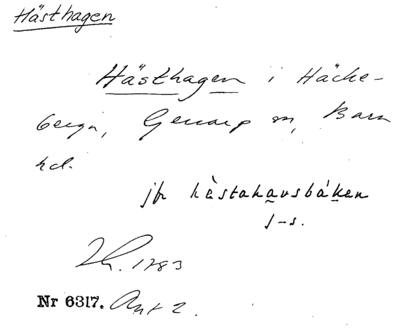 Hästhagen
Hästhagen i Häcke-
berga, Genarp sn, Bara
hd.
jfr hästahavsbáken
j-s.
1783
Nr 6317. Ant 2.